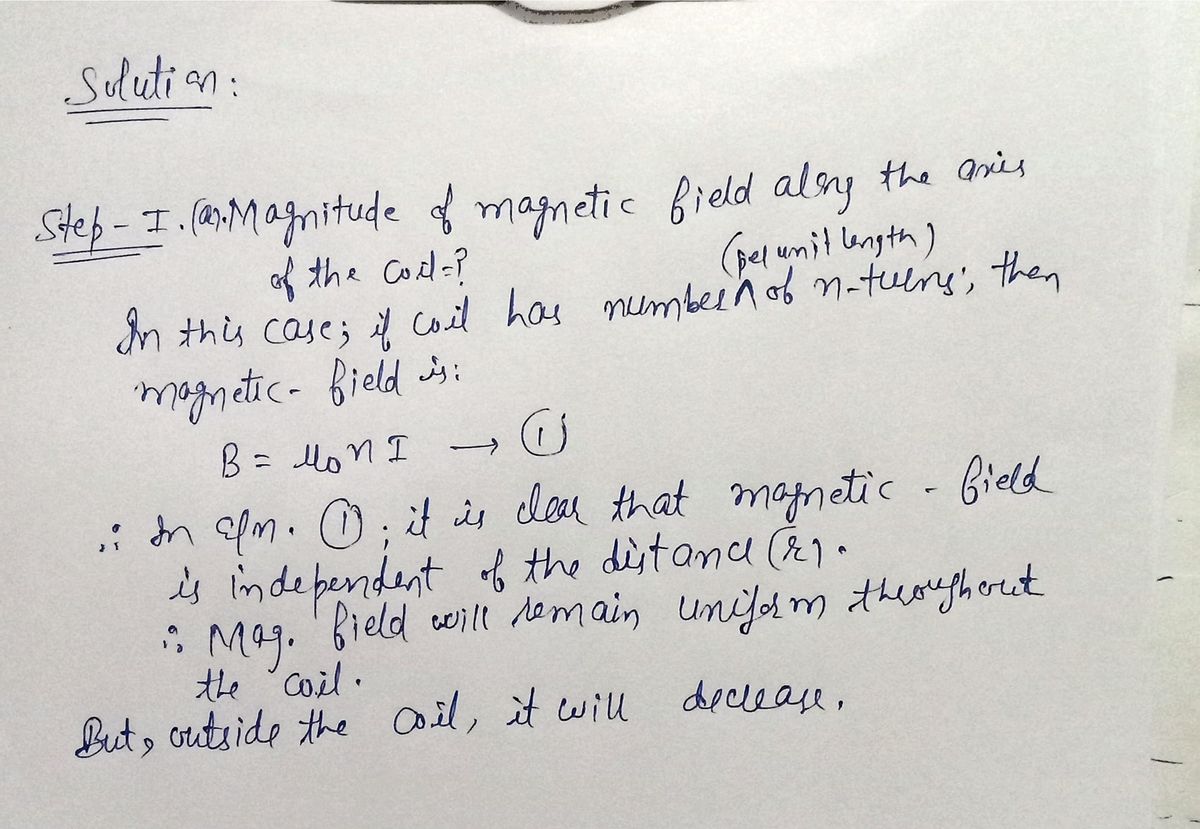 Solution:
Step-I. (a). Magnitude of magnetic field along the axis
of the coil=?
(per unit length)
In this case; if coil has number ∧ of n-turns; then
magnetic- field is:
B = μ₀nI → ①
∴ In eqn. ①; it is clear that magnetic - field
is independent of the distance (r).
∴ Mag. field will remain uniform throughout
the coil.
But, outside the coil, it will decrease.